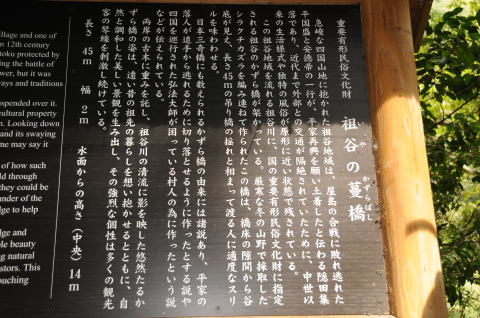 重要有形民俗文化財
祖谷の蔓橋
いや
かずらばし
急峻な四国山地に抱かれた祖谷地域は、屋島の合戦に敗れ逃れた
平国盛と安徳帝の一行が、平家再興を願い土着したと伝わる隠田集
落であり、近代まで外部との交通が隔絶されていたために、中世以
来の生活様式や独特の風俗が原形に近い状態で残されている。
この祖谷地域を流れる祖谷川に、国の重要有形民俗文化財に指定
される祖谷のかずら橋が架かっている。厳寒な冬の山野で採取した
シラクチカズラを編み連ねて作られたこの橋は、橋床の隙間から谷
底が見え、長さ45mの吊り橋の揺れと相まって渡る人に適度なスリ
ルを味わわせる。
日本三奇橋にも数えられるかずら橋の由来には諸説あり、平家の
落人が追手から逃れるために切り落とせるように作ったとする説や
四国を巡行された弘法大師が困っている村人の為に作ったという説
などが伝えられている。
両岸の古木に重みを託し、祖谷川の清流に影を映した悠然たるか
ずら橋の姿は、遠い昔の祖先の暮らしを想い抱かせるとともに、自
然と調和した美しい景観を生み出し、その強烈な個性は多くの観光
客の琴線を刺激し続けている。
長さ 45m 幅 2m 水面からの高さ(中央) 14m
village and one of
12th century
toku protected by
ing the battle of
ower, but it was
ways and traditions
spended over it.
ultural property
n. Looking down
and its swaying
me may say it
of how such
ld through
they could be
under of the
dge to help
dge and
ble beauty
ing natural
estors. This
ouching